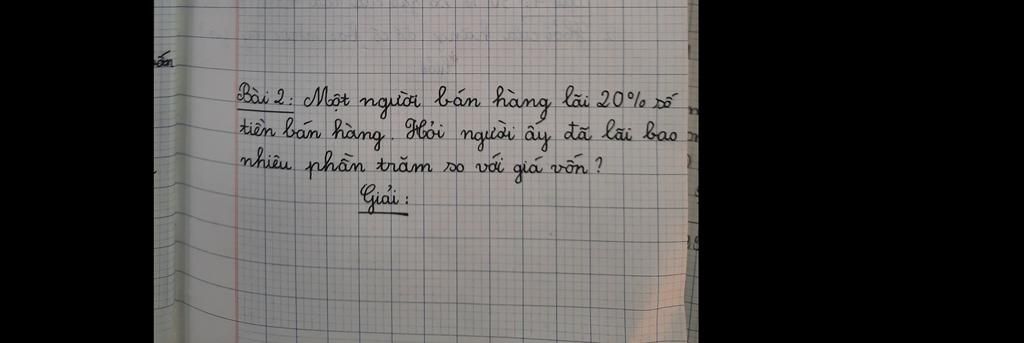 Bài 2: Một người bán hàng lãi 20% số
tiền bán hàng. Hỏi người ấy đã lãi bao
nhiêu phần trăm so với giá vốn?
Giải: